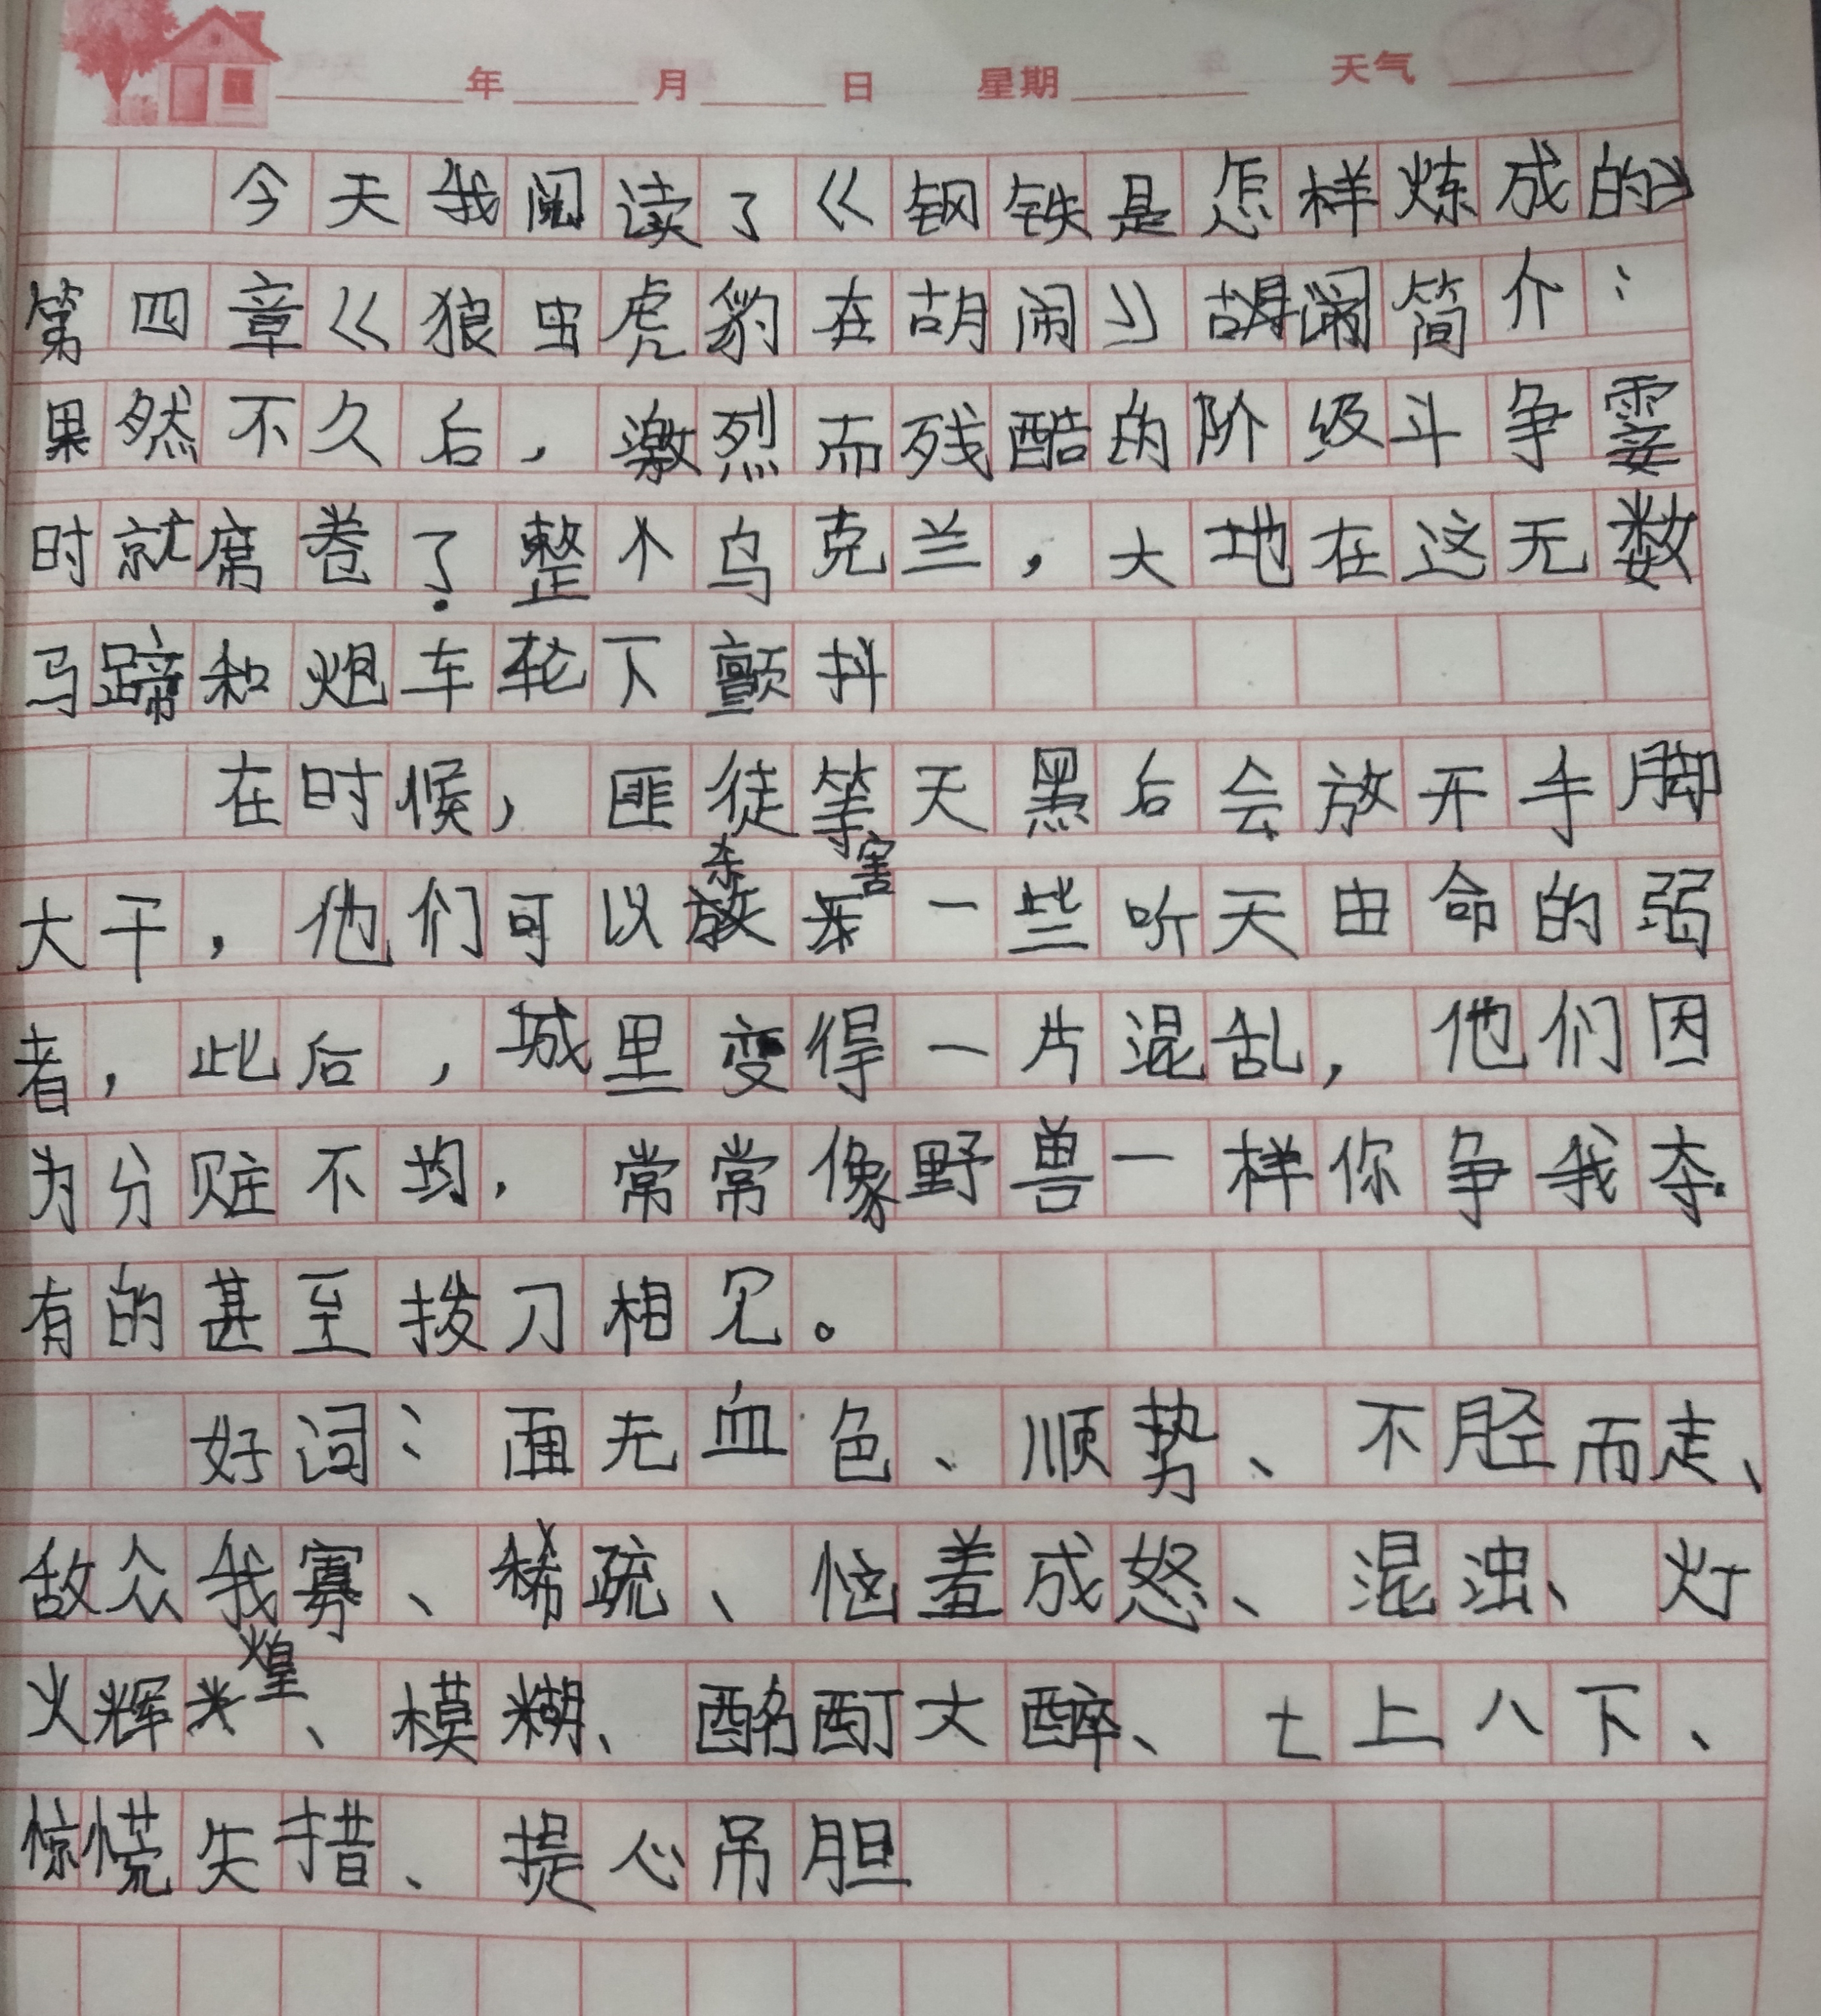 年 月 日 星期 天气
今天我阅读了《钢铁是怎样炼成的》
第四章《狼虫虎豹在胡闹》简介：
果然不久后，激烈而残酷的阶级斗争霎
时就席卷了整个乌克兰，大地在这无数
马蹄和炮车轮下颤抖
在时候，匪徒等天黑后会放开手脚
大干，他们可以杀害一些听天由命的弱
者，此后，城里变得一片混乱，他们因
为分赃不均，常常像野兽一样你争我夺.
有的甚至拔刀相见。
好词：面无血色、顺势、不胫而走、
敌众我寡、稀疏、恼羞成怒、混浊、灯
火辉煌、模糊、酩酊大醉、七上八下、
惊慌失措、提心吊胆